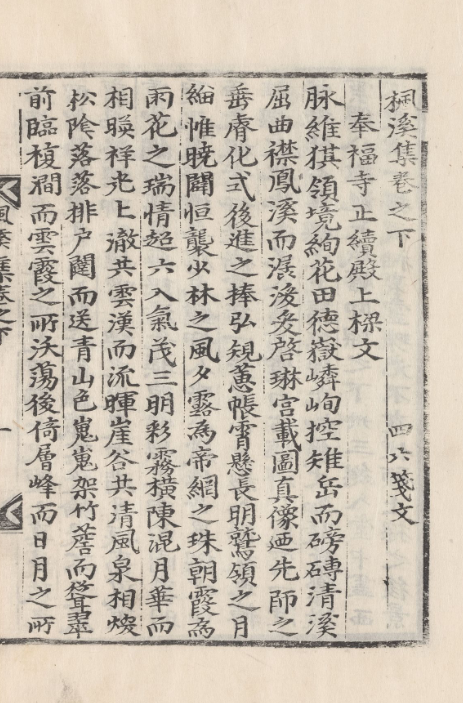 楓溪集卷之下　四六箋文
奉福寺正續殿上樑文
脉維猉領境絢花田德嶽嶙峋控雉岳而磅礴清溪
屈曲襟鳳溪而漫浚爰啓琳宮載圖真像迺先師之
垂膺化式後進之捧弘䂓蕙帳宵懸長明鷲領之月
紬帷曉闢恒襲少林之風夕露為帝網之珠朝霞為
雨花之瑞情超六入氣茂三明彩霧橫陳混月華而
相暎祥光上澈共雲漢而流暉崖谷共清風泉相煥
松陰落落排户闥而送青山色嵬嵬架竹薝而聳翠
前臨複澗而雲霞之所沃蕩後倚層峰而日月之所
楓溪集卷之下
一